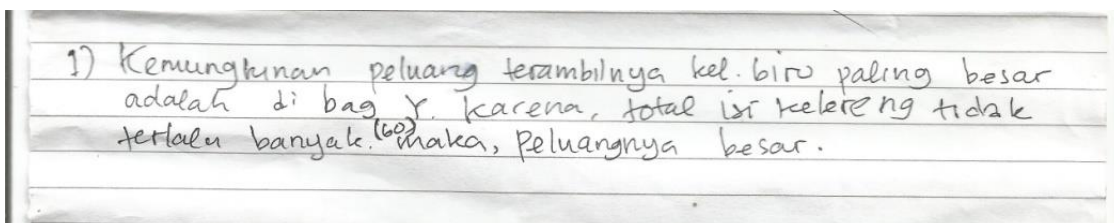 1) Kemungkinan peluang terambilnya kel. biru paling besar
adalah di bag Y. Karena, total isi kelereng tidak
terlalu banyak. (60) maka, peluangnya besar.